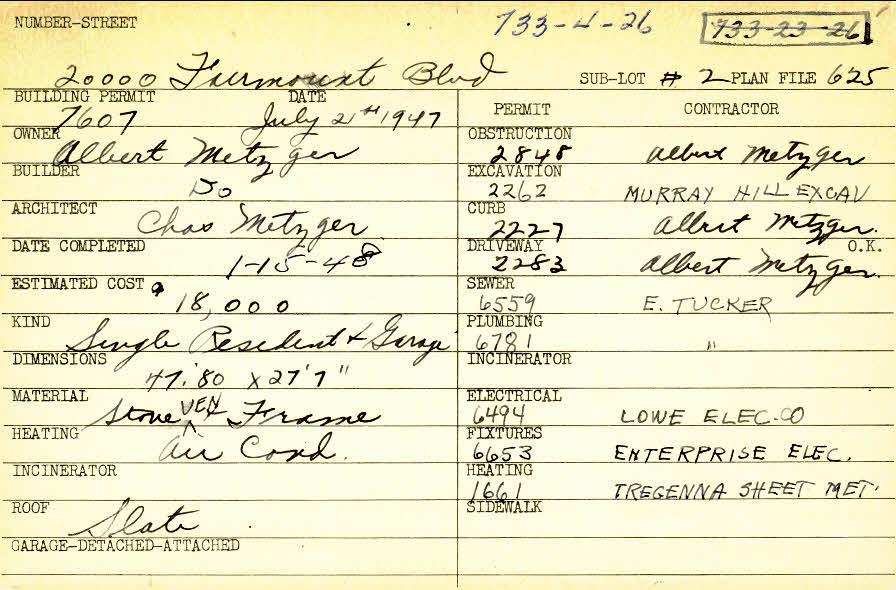 NUMBER-STREET 733-4-26 733-23-26
20000 Fairmount Blvd SUB-LOT # 2 PLAN FILE 625
BUILDING PERMIT DATE
7607 July 21st 1947
OWNER
Albert Metzger
BUILDER
Do
ARCHITECT
Chas Metzger
DATE COMPLETED
1-15-48
ESTIMATED COST
18,000
KIND
Single Resident & Garage
DIMENSIONS
47.'80 x 27'7"
MATERIAL
Stone VEN & Frame
HEATING
Air Cond.
INCINERATOR
ROOF
Slate
GARAGE-DETACHED-ATTACHED
PERMIT CONTRACTOR
OBSTRUCTION
2848 Albert Metzger
EXCAVATION
2262 MURRAY HILL EXCAV
CURB
2227 Albert Metzger.
DRIVEWAY O.K.
2283 Albert Metzger.
SEWER
6559 E. TUCKER
PLUMBING
6781 "
INCINERATOR
ELECTRICAL
6494 LOWE ELEC. CO
FIXTURES
6653 ENTERPRISE ELEC.
HEATING
1661 TREGENNA SHEET MET.
SIDEWALK